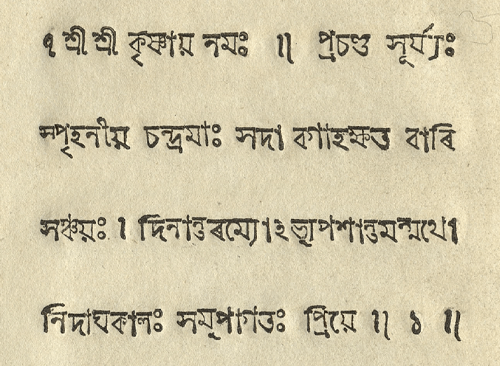 ৭ শ্রী শ্রী কৃষ্ণায় নমঃ ॥ প্রচণ্ড সূর্য্যঃ
স্পৃহনীয় চন্দ্রমাঃ সদা বগাহক্ষত বাৰি
সঞ্চয়ঃ । দিনান্তৰম্যোঽভ্যুপশান্তমন্মথো
নিদাঘকালঃ সমুপাগতঃ প্রিয়ে ॥ ১ ॥